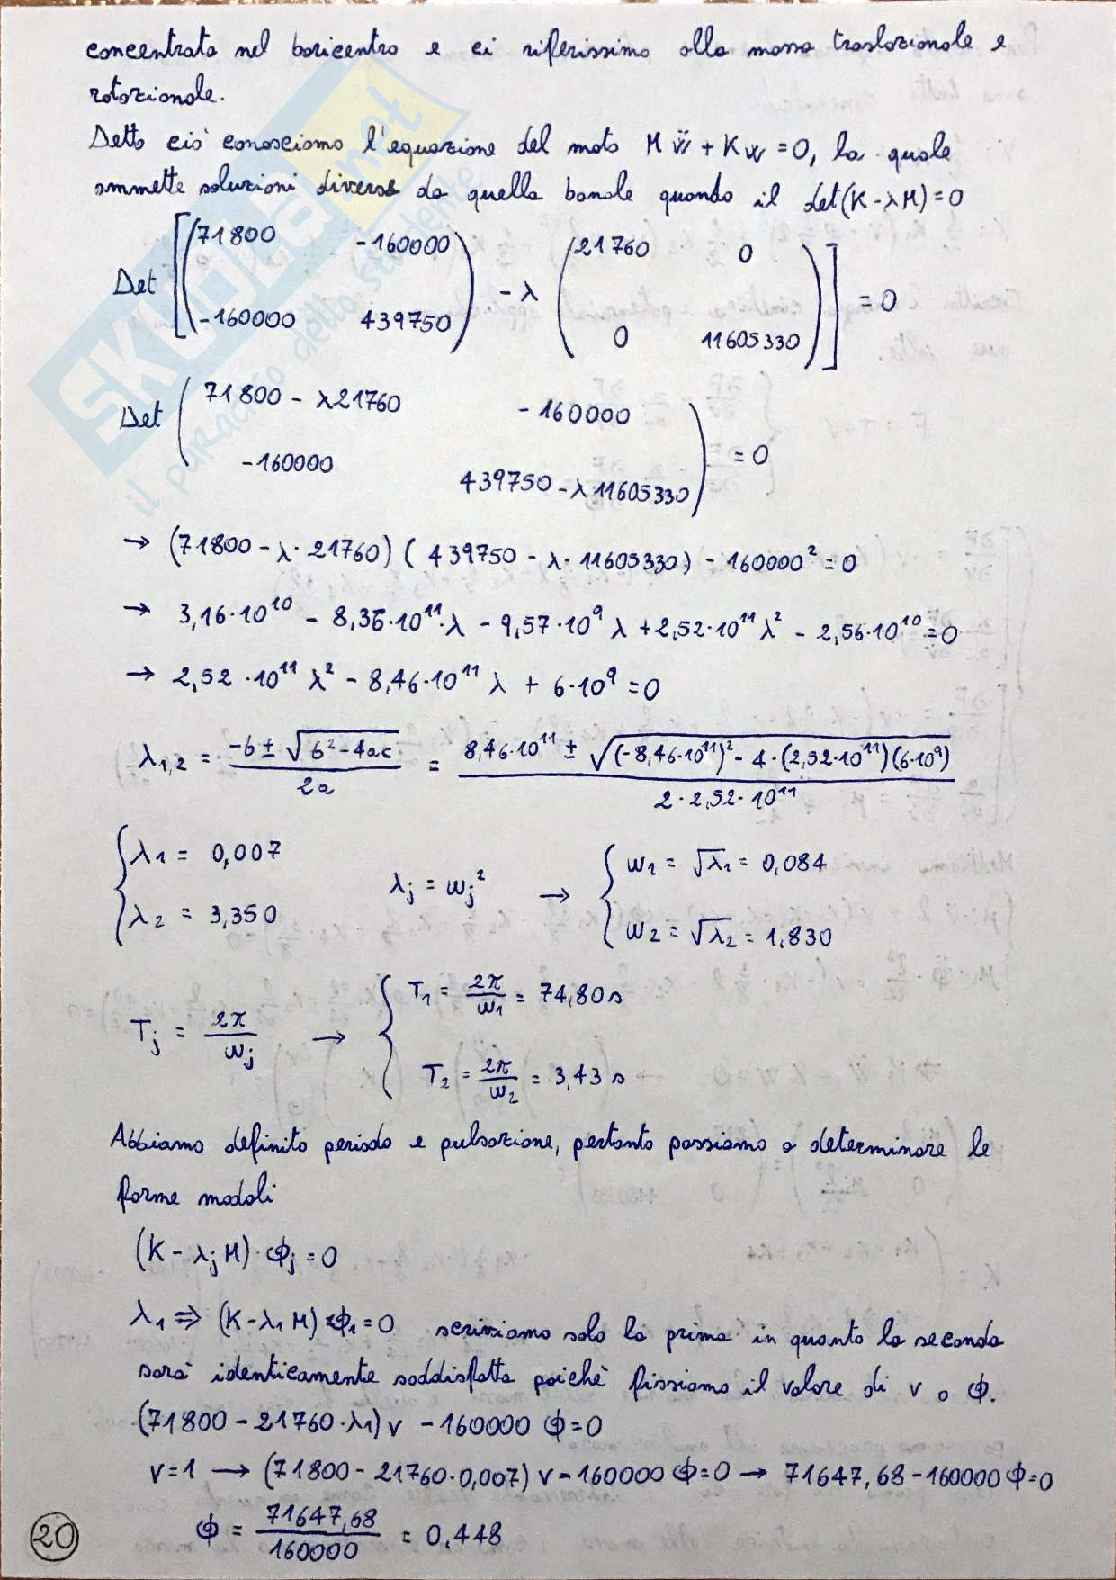 concentrata nel baricentro e ci riferissimo alla massa traslazionale e
rotazionale.
Detto ciò conosciamo l'equazione del moto M ẅ + K w = 0, la quale
ammette soluzioni diverse da quella banale quando il det(K-λM)=0
Det [(71800 -160000
-160000 439750) - λ (21760 0
0 11605330)] = 0
Det (71800 - λ21760 -160000
-160000 439750 - λ11605330) = 0
→ (71800 - λ·21760) (439750 - λ·11605330) - 160000² = 0
→ 3,16·10¹⁰ - 8,36·10¹¹·λ - 9,57·10⁹ λ + 2,52·10¹¹ λ² - 2,56·10¹⁰ = 0
→ 2,52·10¹¹ λ² - 8,46·10¹¹ λ + 6·10⁹ = 0
λ1,2 = (-b ± √(b²-4ac))/2a = (8,46·10¹¹ ± √((-8,46·10¹¹)² - 4·(2,52·10¹¹)(6·10⁹)))/(2·2,52·10¹¹)
{λ1 = 0,007
λ2 = 3,350
λj = ωj² → {ω1 = √λ1 = 0,084
ω2 = √λ2 = 1,830
Tj = 2π/ωj → {T1 = 2π/ω1 = 74,80 s
T2 = 2π/ω2 = 3,43 s
Abbiamo definito periodo e pulsazione, pertanto passiamo a determinare le
forme modali
(K - λj M)·Φj = 0
λ1 ⇒ (K-λ1 M) Φ1 = 0 scriviamo solo la prima in quanto la seconda
sarà identicamente soddisfatta poiché fissiamo il valore di v o φ.
(71800 - 21760·λ1) v - 160000 φ = 0
v=1 → (71800 - 21760·0,007) v - 160000 φ = 0 → 71647,68 - 160000 φ = 0
φ = 71647,68/160000 = 0,448
20
SKUOLA.net
il paradiso dello studente